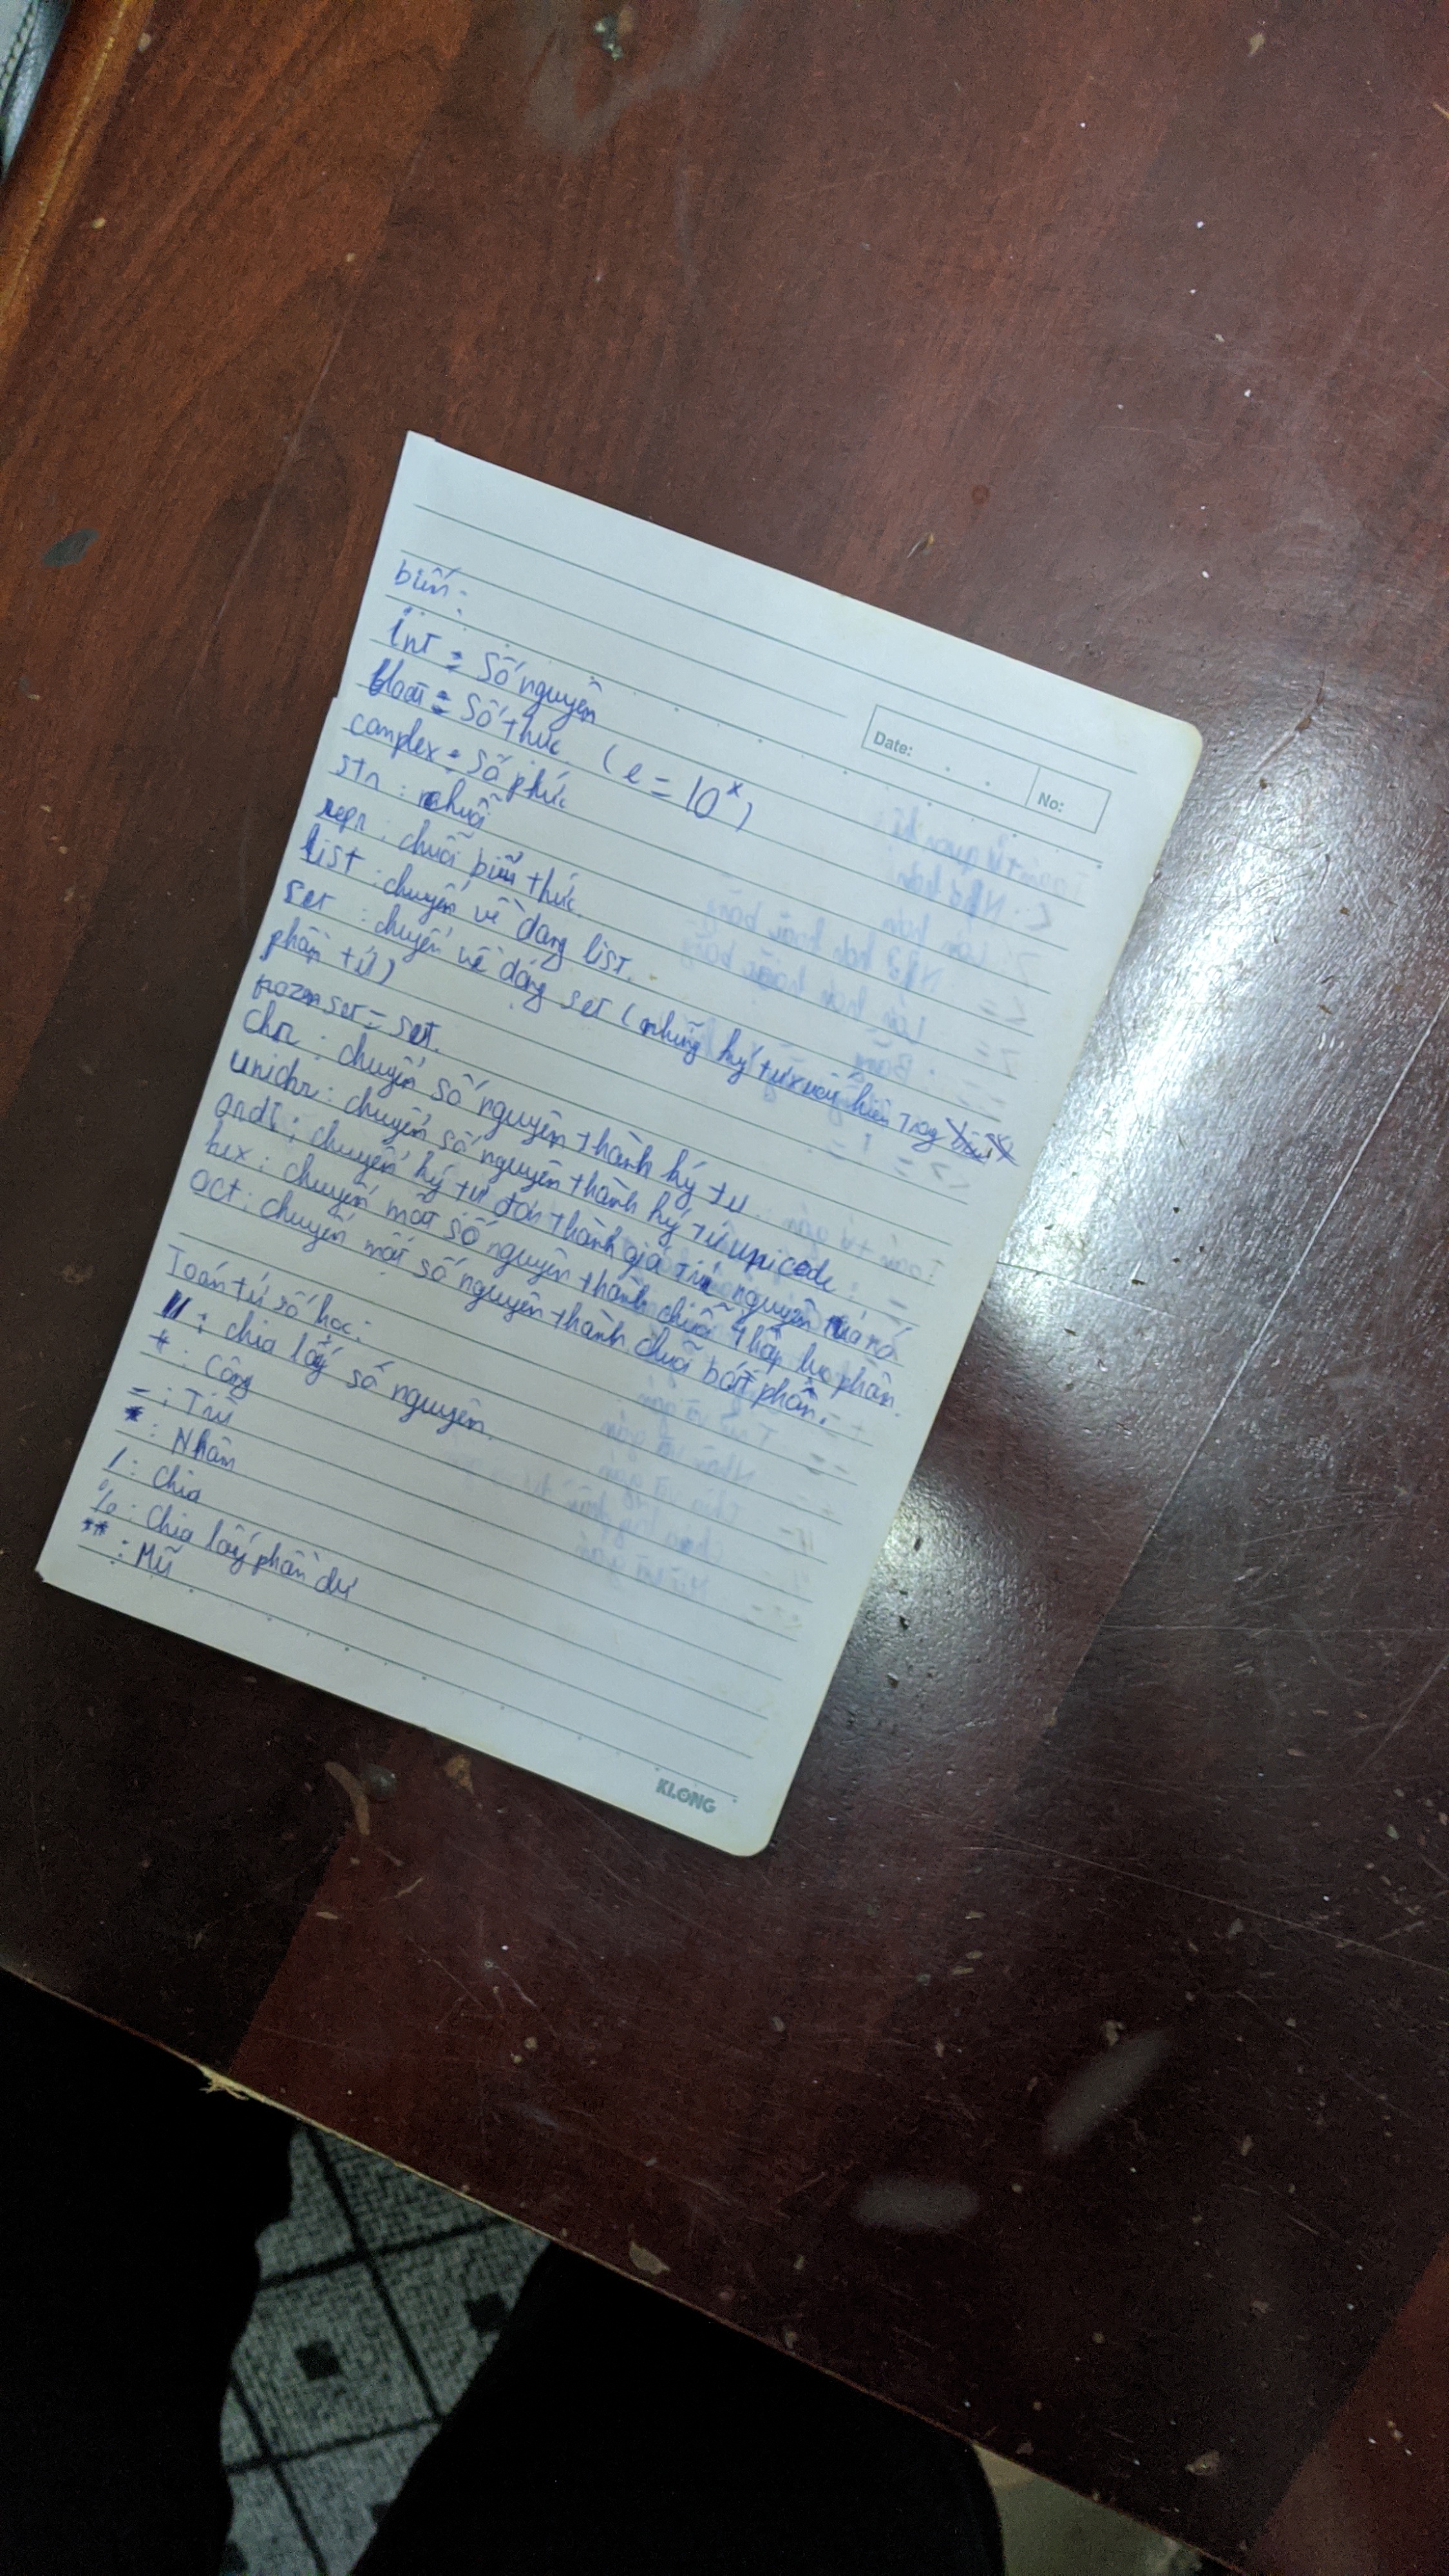 Date:
No:
biến:
int : Số nguyên
float : Số thực (e = 10^x)
complex : Số phức
str : chuỗi
repr : chuỗi biểu thức.
list : chuyển về dạng list.
set : chuyển về dạng set (những ký tự xuất hiện trong
phần tử)
frozenset = set.
chr : chuyển số nguyên thành ký tự
unichr : chuyển số nguyên thành ký tự unicode
ordi : chuyển ký tự đơn thành giá trị nguyên của nó
hex : chuyển một số nguyên thành chuỗi thập lục phân.
oct : chuyển một số nguyên thành chuỗi bát phân.
Toán tử số học:
// : chia lấy số nguyên.
+ : Cộng
- : Trừ
* : Nhân
/ : Chia
% : Chia lấy phần dư
** : Mũ
KLONG